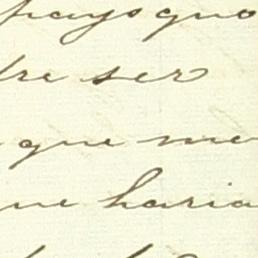 pays quo
dre ser
que me
ue haria